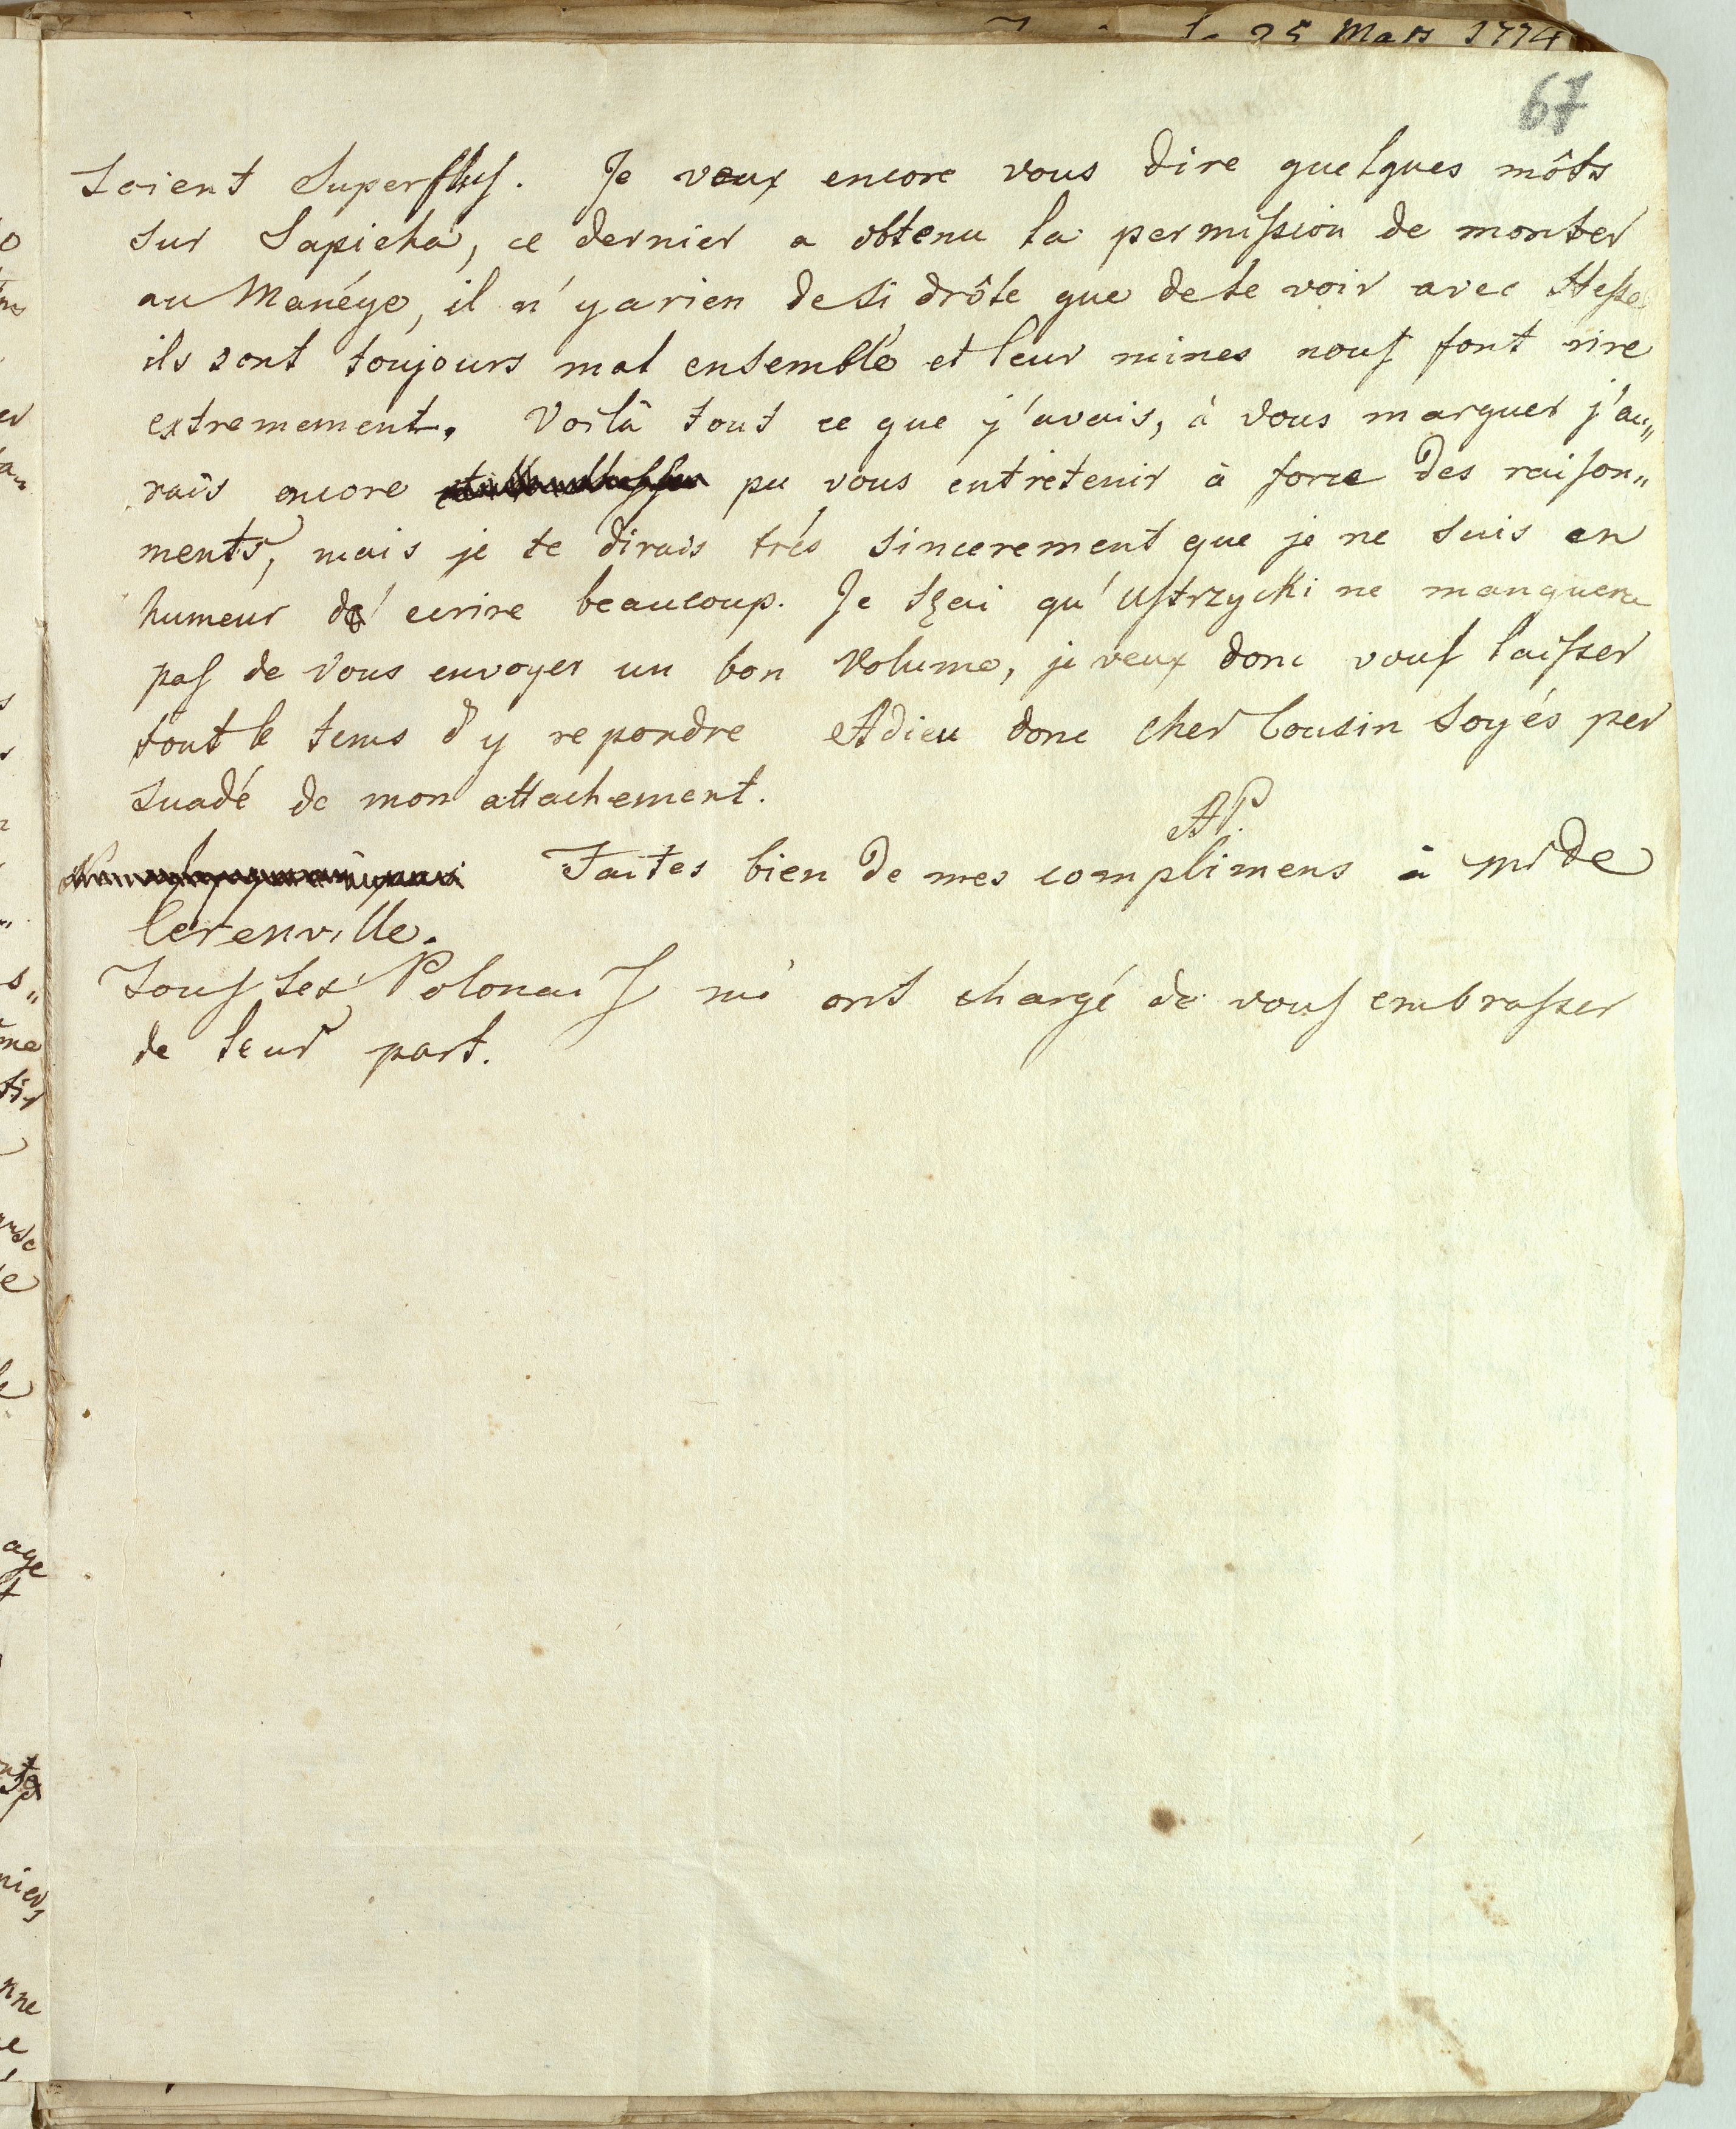 25 Mars 1774
67
soient superflus. Je veux encore vous dire quelques môts
sur Sapieha, ce dernier a obtenu la permission de monter
au Manége, il n'y a rien de si drôle que de le voir avec Hesse
ils sont toujours mal ensemble et leur mines nous font rire
extremement. Voilà tout ce que j'avais, à vous marquer j'au„
rais encore pu vous entretenir à force des raison„
ments, mais je te dirais très sincerement que je ne suis en
humeur d'ecrire beaucoup. Je sçai qu'Ustrzycki ne manquera
pas de vous envoyer un bon volume, je veux donc vous laisser
tout le tems d'y repondre Adieu donc cher Cousin soyés per
suadé de mon attachement.
AP.
Faites bien de mes complimens à Mr de
Cerenville.
Tous les Polonais m'ont chargé de vous embrasser
de leur part.